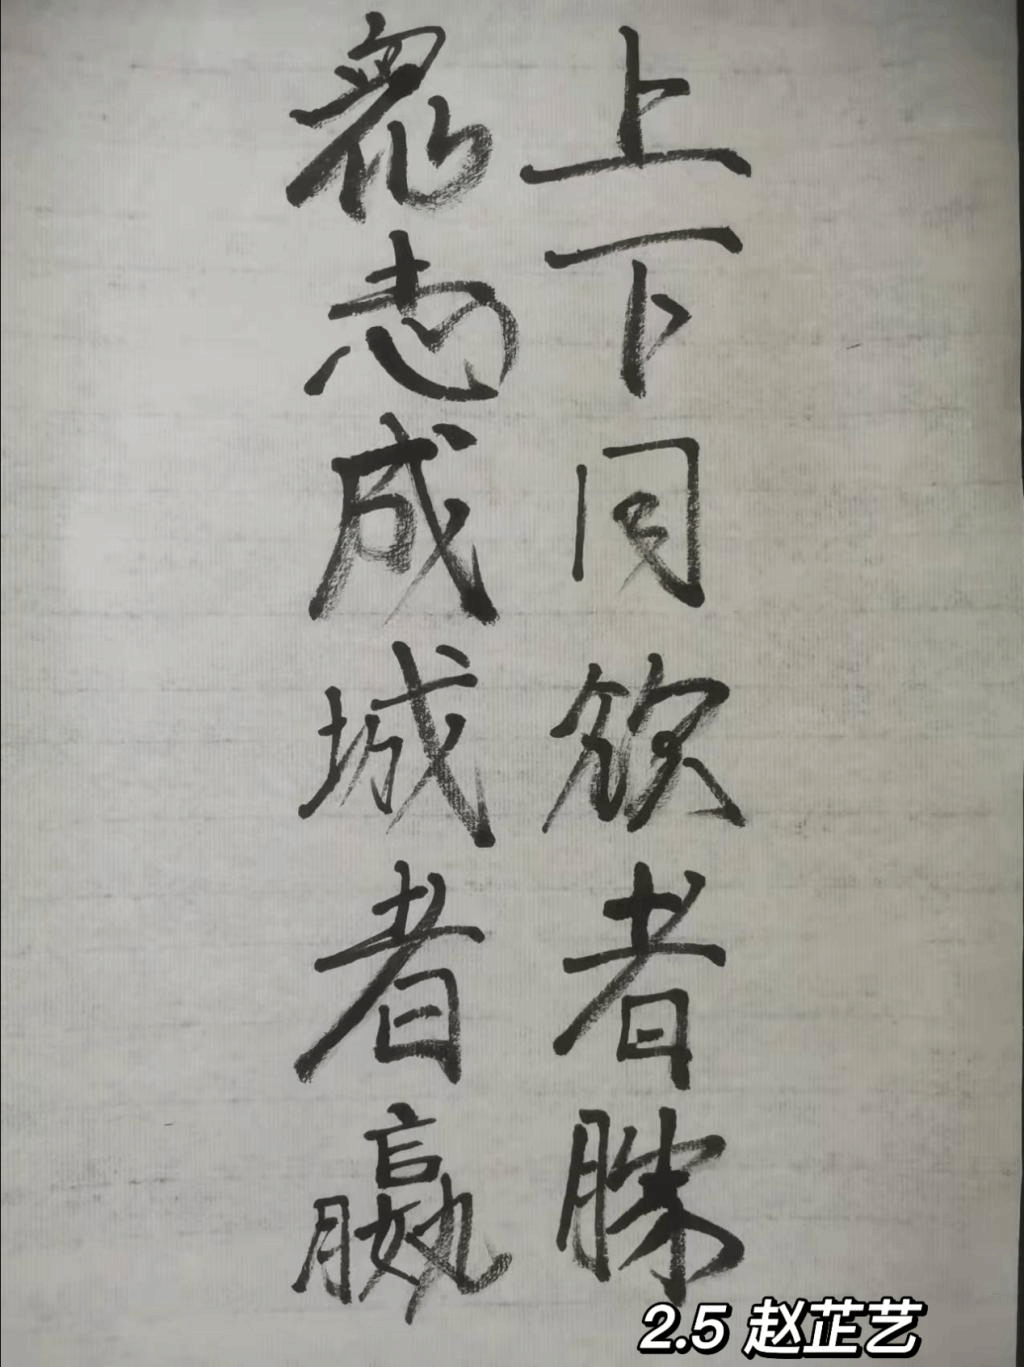 上下同欲者勝
衆志成城者嬴
2.5 赵芷艺